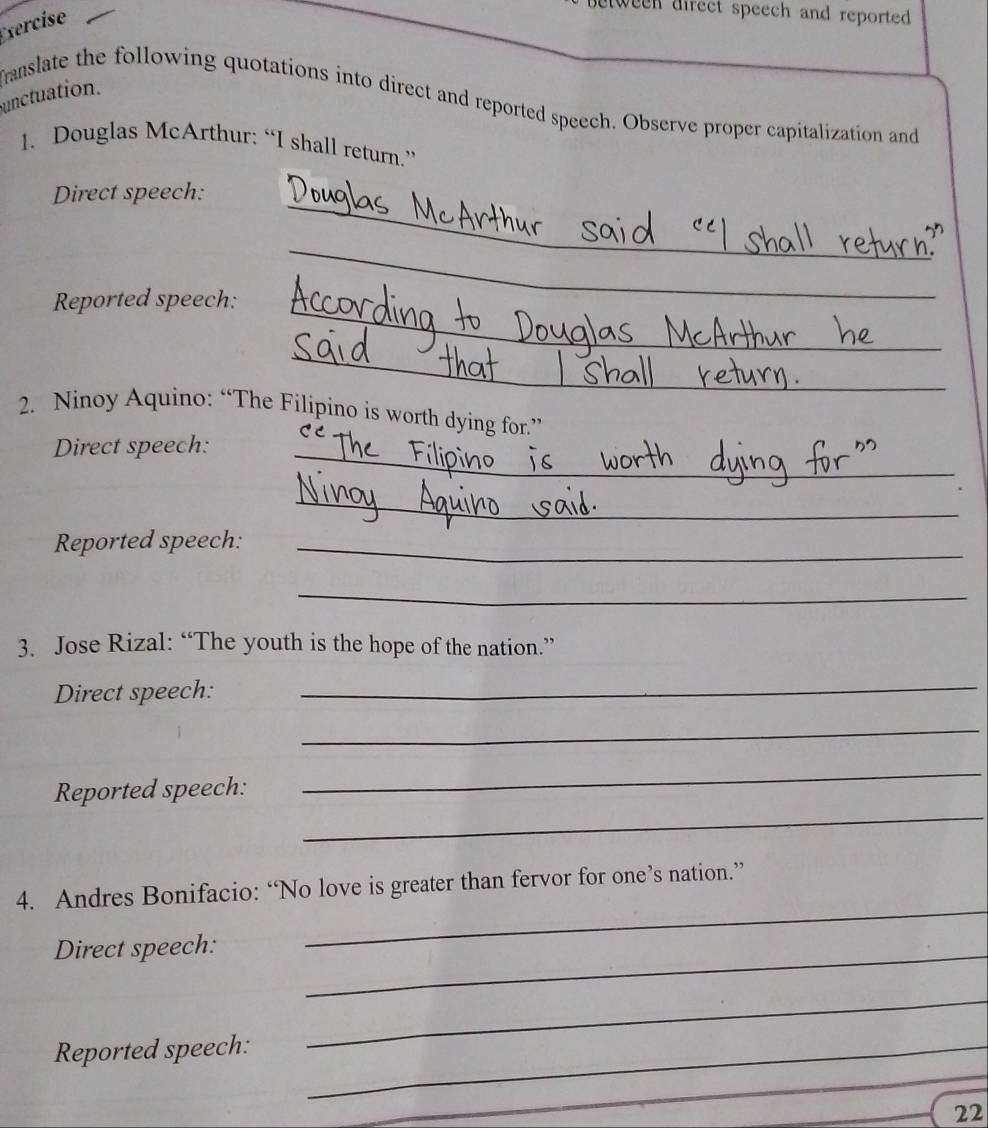 between direct speech and reported
Exercise
Translate the following quotations into direct and reported speech. Observe proper capitalization and
punctuation.
1. Douglas McArthur: “I shall return.”
Direct speech: Douglas McArthur said “I shall return.”
Reported speech: According to Douglas McArthur he
said that I shall return.
2. Ninoy Aquino: “The Filipino is worth dying for.”
Direct speech: “The Filipino is worth dying for”
Ninoy Aquino said.
Reported speech:
3. Jose Rizal: “The youth is the hope of the nation.”
Direct speech:
Reported speech:
4. Andres Bonifacio: “No love is greater than fervor for one’s nation.”
Direct speech:
Reported speech:
22